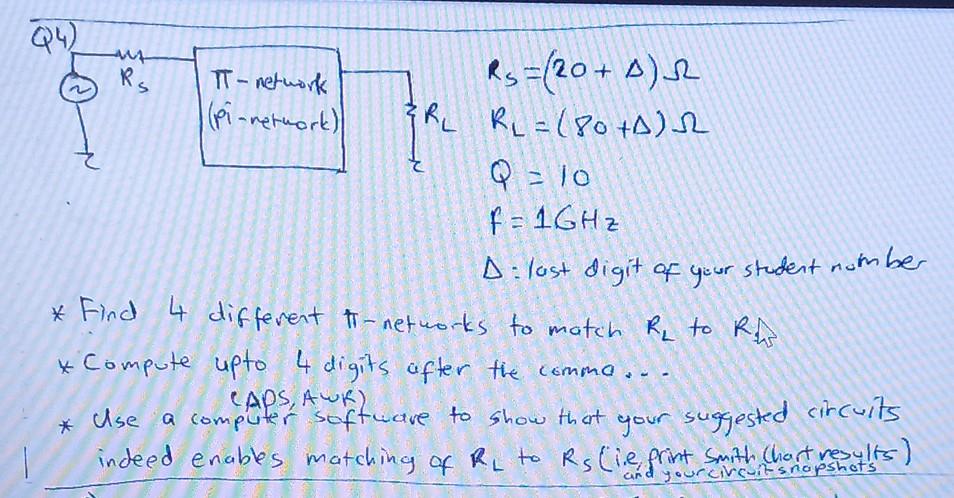 Q4)
Rs
π-network
(pi-network)
RL
Rs = (20 + Δ) Ω
RL = (80 + Δ) Ω
Q = 10
f = 1GHz
Δ : last digit of your student number
* Find 4 different π-networks to match RL to Rs
* Compute upto 4 digits after the comma...
(ADS, AWR)
* Use a computer software to show that your suggested circuits
indeed enables matching of RL to Rs (i.e, print Smith Chart results)
and your circuit snapshots